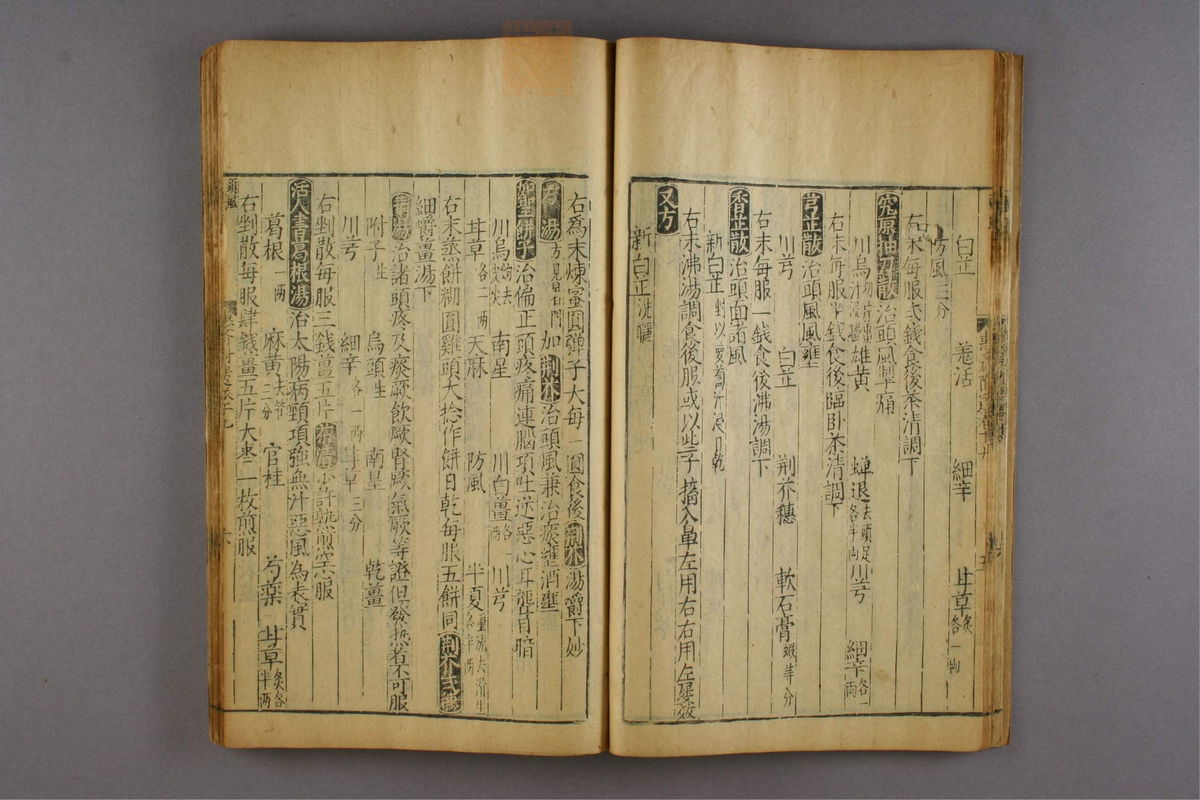 白芷 羗活 細辛 甘草炙各一兩
防風三分
右末每服弍錢食後茶清調下
究原抽刀散治頭風掣痛
川烏 雄黃 蟬退去頭足各半兩 川芎 細辛各一兩
右末每服半錢食後臨卧茶清調下
芎芷散治頭風風壅
川芎 白芷 荆芥穗 軟石膏
右末每服一錢食後沸湯調下
香芷散治頭面諸風
新白芷 以蘿蔔汁浸日乾
右末沸湯調食後服或以些子搐入鼻左用右右用左屢效
又方
新白芷洗曬
右爲末煉蜜圓彈子大每一圓食後荆芥湯嚼下妙
湯方 加荆芥治頭風兼治痰壅消壅
如聖餅子治偏正頭疼痛連腦項吐逆惡心耳聾目暗
川烏 南星 川白薑各一兩 川芎
甘草各二兩 天麻 防風 半夏
右末蒸餅糊圓雞頭大捻作餅日乾每服五餅同荆芥弍穗
細嚼薑湯下
湯治諸頭疼及痰厥飲厥腎厥氣厥等證但發熱者不可服
附子生 烏頭生 南星 乾薑
川芎 細辛各一兩 甘草三分
右剉散每服三錢薑五片茶清少許熱煎空心服
活人書葛根湯治太陽病頸項強無汗惡風為表實
葛根一兩 麻黃去節三分 官桂 芍藥 甘草炙各半兩
右剉散每服肆錢薑五片大棗二枚煎服
頭風